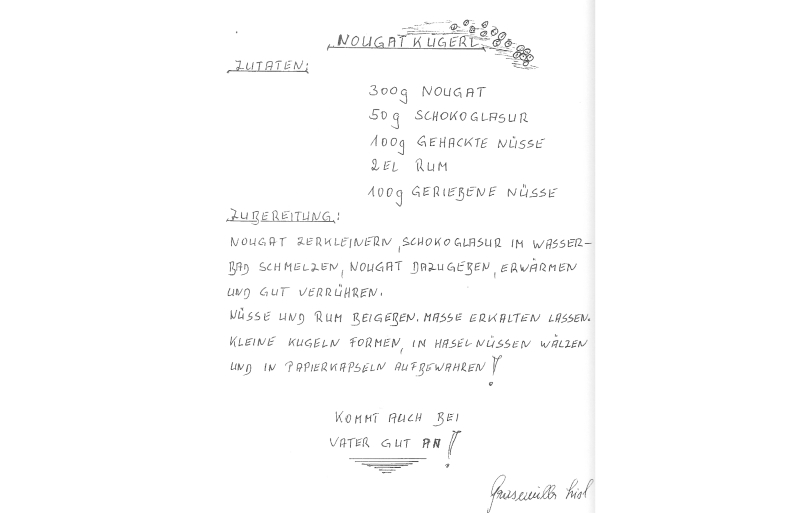 NOUGATKUGERL
ZUTATEN:
300g NOUGAT
50g SCHOKOGLASUR
100g GEHACKTE NÜSSE
2EL RUM
100g GERIEBENE NÜSSE
ZUBEREITUNG:
NOUGAT ZERKLEINERN, SCHOKOGLASUR IM WASSER-
BAD SCHMELZEN, NOUGAT DAZUGEBEN, ERWÄRMEN
UND GUT VERRÜHREN.
NÜSSE UND RUM BEIGEBEN. MASSE ERKALTEN LASSEN.
KLEINE KUGELN FORMEN, IN HASELNÜSSEN WÄLZEN
UND IN PAPIERKAPSELN AUFBEWAHREN!
KOMMT AUCH BEI
VATER GUT AN!